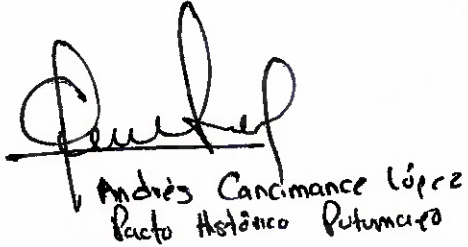 Andrés Cancimance López
Pacto Histórico Putumayo